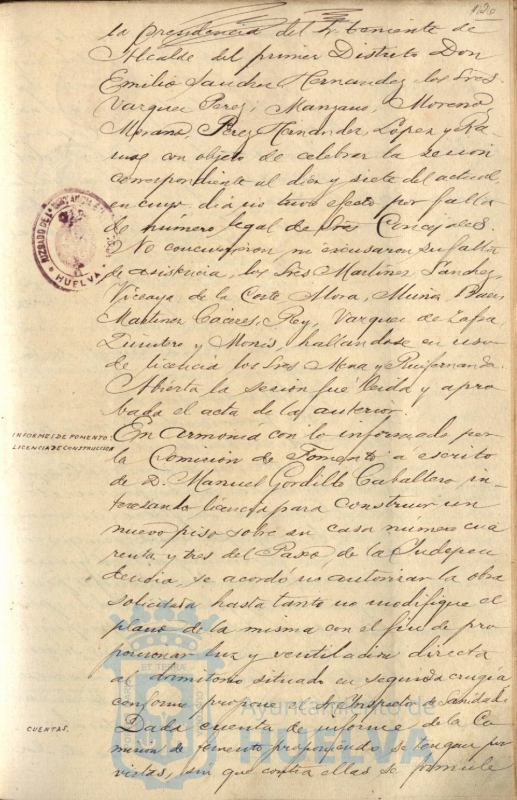 120
la presidencia del Sr. teniente de
Alcalde del primer Distrito Don
Emilio Sanchez Hernandez los Sres.
Vazquez Perez, Manzano, Moreno,
Morano, Perez Hernandez, López y Ra-
mos con objeto de celebrar la sesion
correspondiente al diez y siete del actual,
en cuyo dia no tuvo efecto por falta
de número legal de Sres Concejales.
No concurrieron ni excusaron su falta
de asistencia, los Sres Martinez Sanchez,
Vizcaya, de la Corte Mora, Muñiz, Baez,
Martinez Cáceres, Rey, Vazquez de Zafra,
Quintero y Monis, hallándose en uso
de licencia los Sres Mena y Ruifernandez.
Abierta la sesión fué leida y apro
bada el acta de la anterior.
INFORMES DE FOMENTO:
LICENCIA DE CONSTRUCCION
En armonia con lo informado por
la Comisión de Fomento á escrito
de D. Manuel Gordillo Caballero, in-
teresando licencia para construir un
nuevo piso sobre su casa número cua
renta y tres del Paseo de la Indepen
dencia, se acordó no autorizar la obra
solicitada hasta tanto no modifique el
plano de la misma con el fin de pro
porcionar luz y ventilación directa
al dormitorio situado en segunda crugía
conforme propone el Sr. Inspector de Sanidad.
CUENTAS.
Dada cuenta de informe de la Co
misión de Fomento proponiendo se tengan por
vistas, sin que contra ellas se formule
HUELVA
Ayuntamiento de
HUELVA